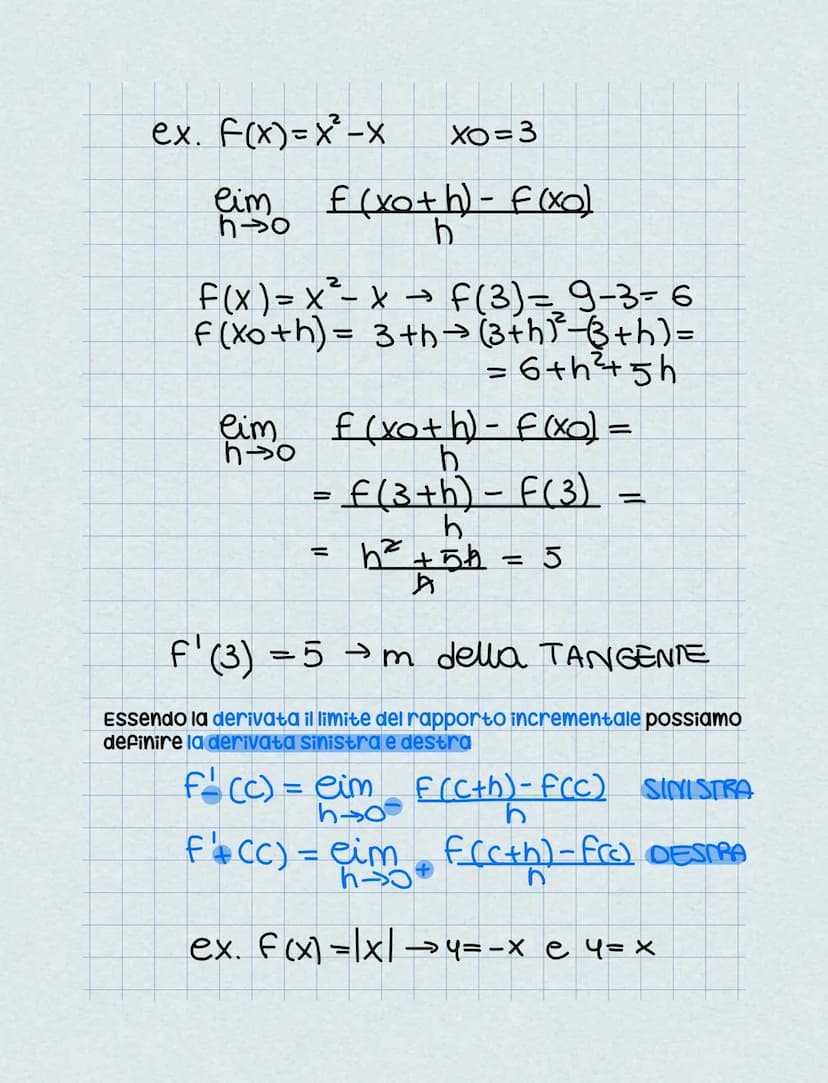 ex. f(x)=x²-x xo=3
lim f(xo+h)-f(xo)
h→0 h
f(x)=x²-x → f(3)= 9-3=6
f(xo+h)= 3+h→(3+h)²-(3+h)=
= 6+h²+5h
lim f(xo+h)-f(xo) =
h→0 h
= f(3+h)-f(3) =
h
= h²+5h = 5
h
f'(3)=5 → m della TANGENTE
Essendo la derivata il limite del rapporto incrementale possiamo
definire la derivata sinistra e destra
f'-(c) = lim f(c+h)-f(c) SINISTRA
h→0⁻ h
f'+(c) = lim f(c+h)-f(c) DESTRA
h→0⁺ h
ex. f(x)=|x| → y=-x e y=x